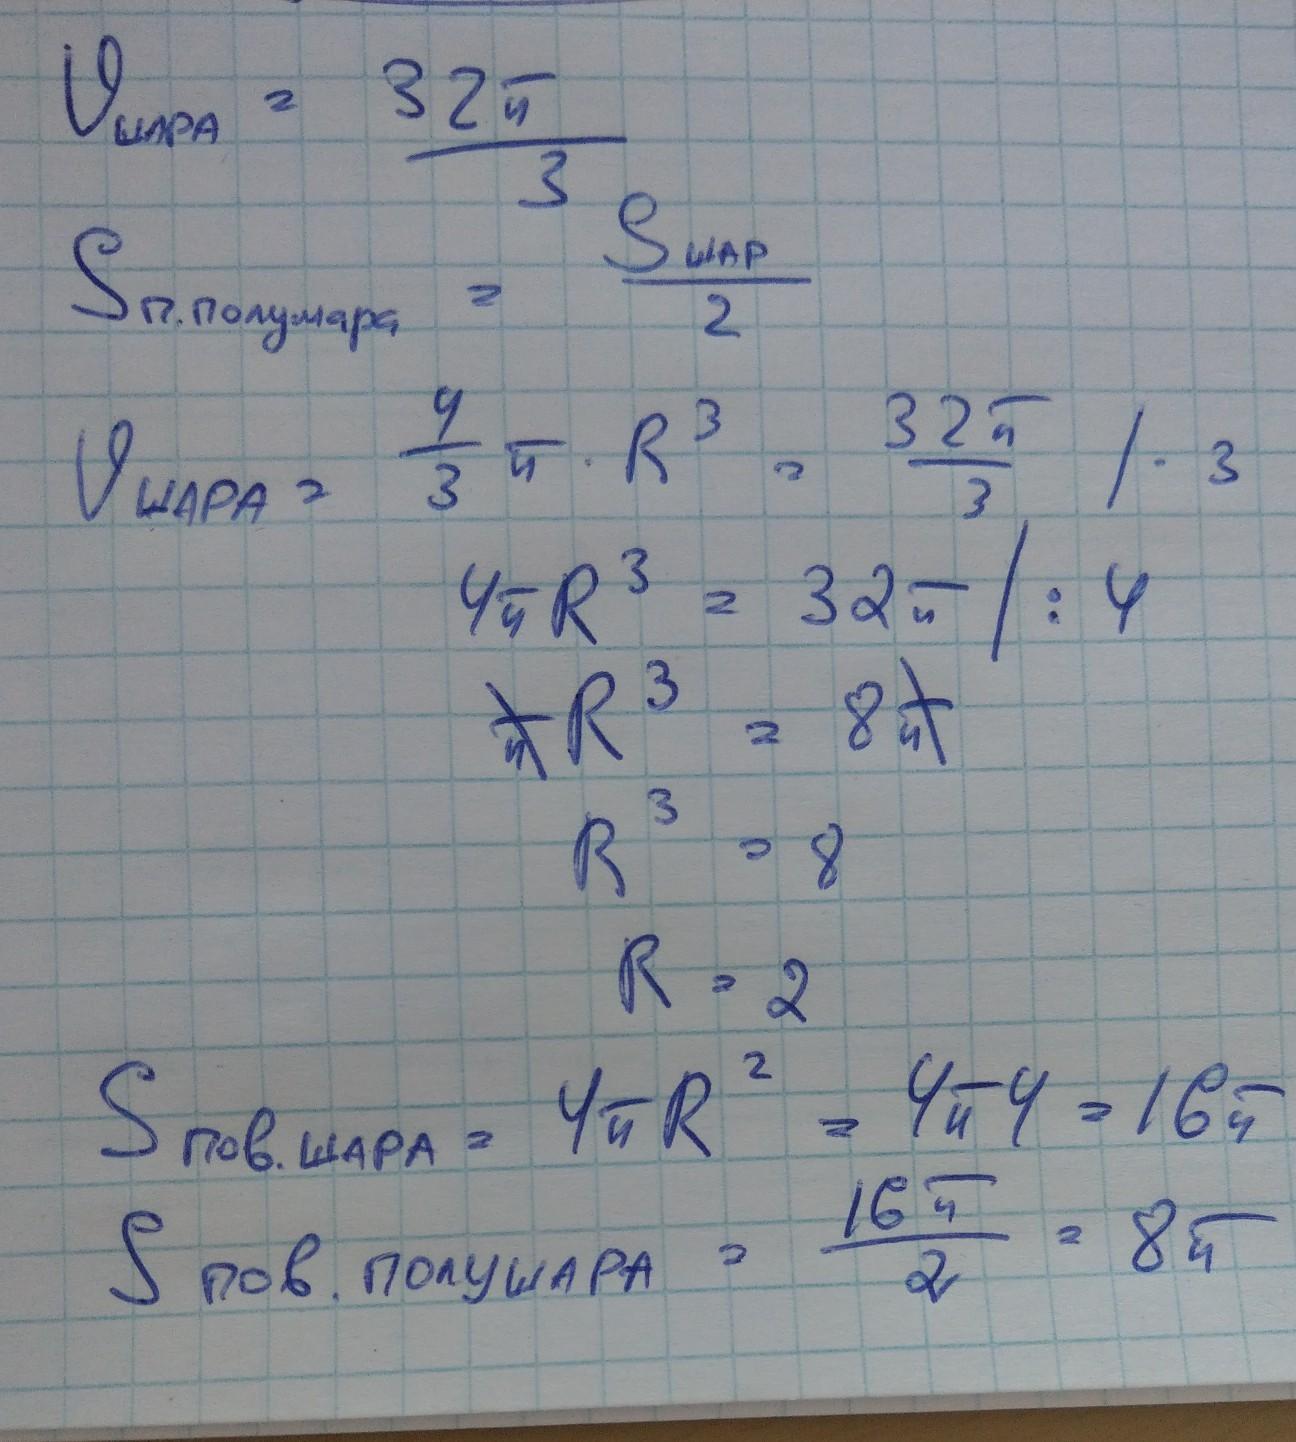 Vшара = 32π/3
Sп.полушара = Sшар/2
Vшара = 4/3 π · R³ = 32π/3 / · 3
4πR³ = 32π / : 4
πR³ = 8π
R³ = 8
R = 2
Sпов.шара = 4πR² = 4π4 = 16π
Sпов.полушара = 16π/2 = 8π